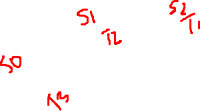 S1
T2
S2
T1
S0
T3